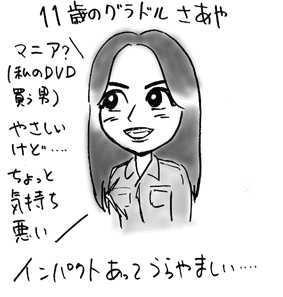 11歳のグラドル さあや
マニア?
(私のDVD
買う男)
やさしい
けど‥‥
ちょっと
気持ち
悪い
インパクトあってうらやましい‥‥